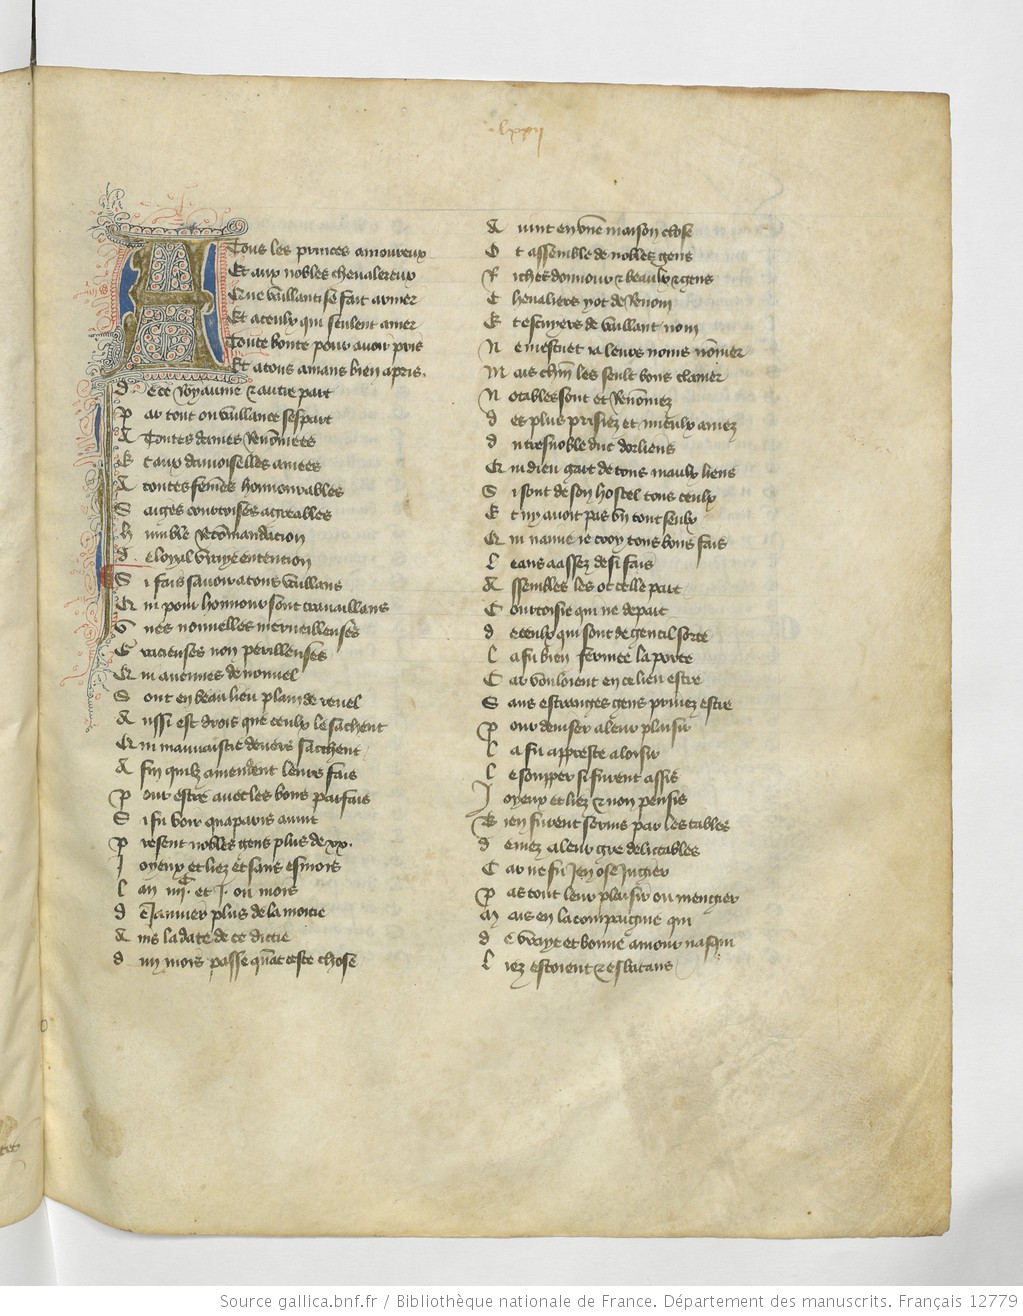 lxxij
A Tous les princes amoureux
Et aux nobles chevalereux
Que vaillantise fait armer
Et a ceulx qui seulent amer
Toute bonte pour avoir pris
Et a tous amans bien apris.
De ce Royaume et autre part
Par tout ou vaillance sespart
A Toutes dames Renōmees
Et aux damoiselles amees
A toutes fem̄es honnourables
Saiges courtoises agreables
Humble Recōmandacion
De loyal vraye entencion
Si fais savoir a tous vaillans
Qui pour honnour sont travaillans
Unes nouvelles merveilleuses
Gracieuses non perilleuses
Qui avenues de nouvel
Sont en beau lieu plain de revel
Aussi est drois que ceulx le sachent
Qui mauvaistie devers sacchent
Afin quilz amendent leurs fais
Pour estre avec les bons parfais
Si fu voir qua paris avint
Present nobles gens plus de xx.
Joyeux et liez et sans esmois
Lan iiijc. et j. ou mois
De Janvier plus de la moitie
Ains la date de ce dictie
Du mois passe quāt ceste chose
Avint en vne maison close
Et assemble de nobles gens
Riches donnour et beaulx et gens
Chevaliers y ot de Renom
Et escuyers de vaillant nom
Ne mestuet ja leurs noms nōmer
Mais chūn les seult bons clamer
Notables sont et Renōmez
Des plus prisiez et mieulx amez
Du tresnoble duc dorliens
Qui dieu gart de tous maulx liens
Si sont de son hostel tous ceulx
Et ny avoit pas vn tout seulx
Qui naime je croy tous bons fais
Leans a assez de si fais
Assembles les ot celle part
Courtoisie qui ne depart
De ceulx qui sont de gentil sorte
La fu bien fermee la porte
Car vouloient en ce lieu estre
Sans estranges gens privez estre
Pour deviser a leur plaisir
La fu appreste a loisir
Le soupper si furent assis
Joyeux et liez et non pensis
Bien furent servis par les tables
De mez a leur gre delictables
Car ne fu Jen ose Jugier
Pas tout leur plaisir ou mengier
Mais en la compaignie qui
De vraye et bonne amour nasqui
Liez estoient et esbatans
Source gallica.bnf.fr / Bibliothèque nationale de France. Département des manuscrits. Français 12779